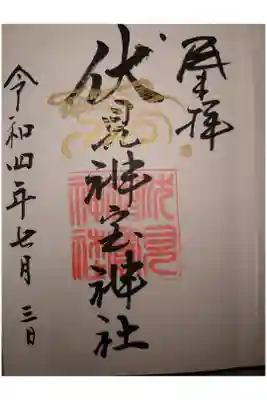 奉拝
伏見神宝神社
令和四年七月三日
伏見
神社